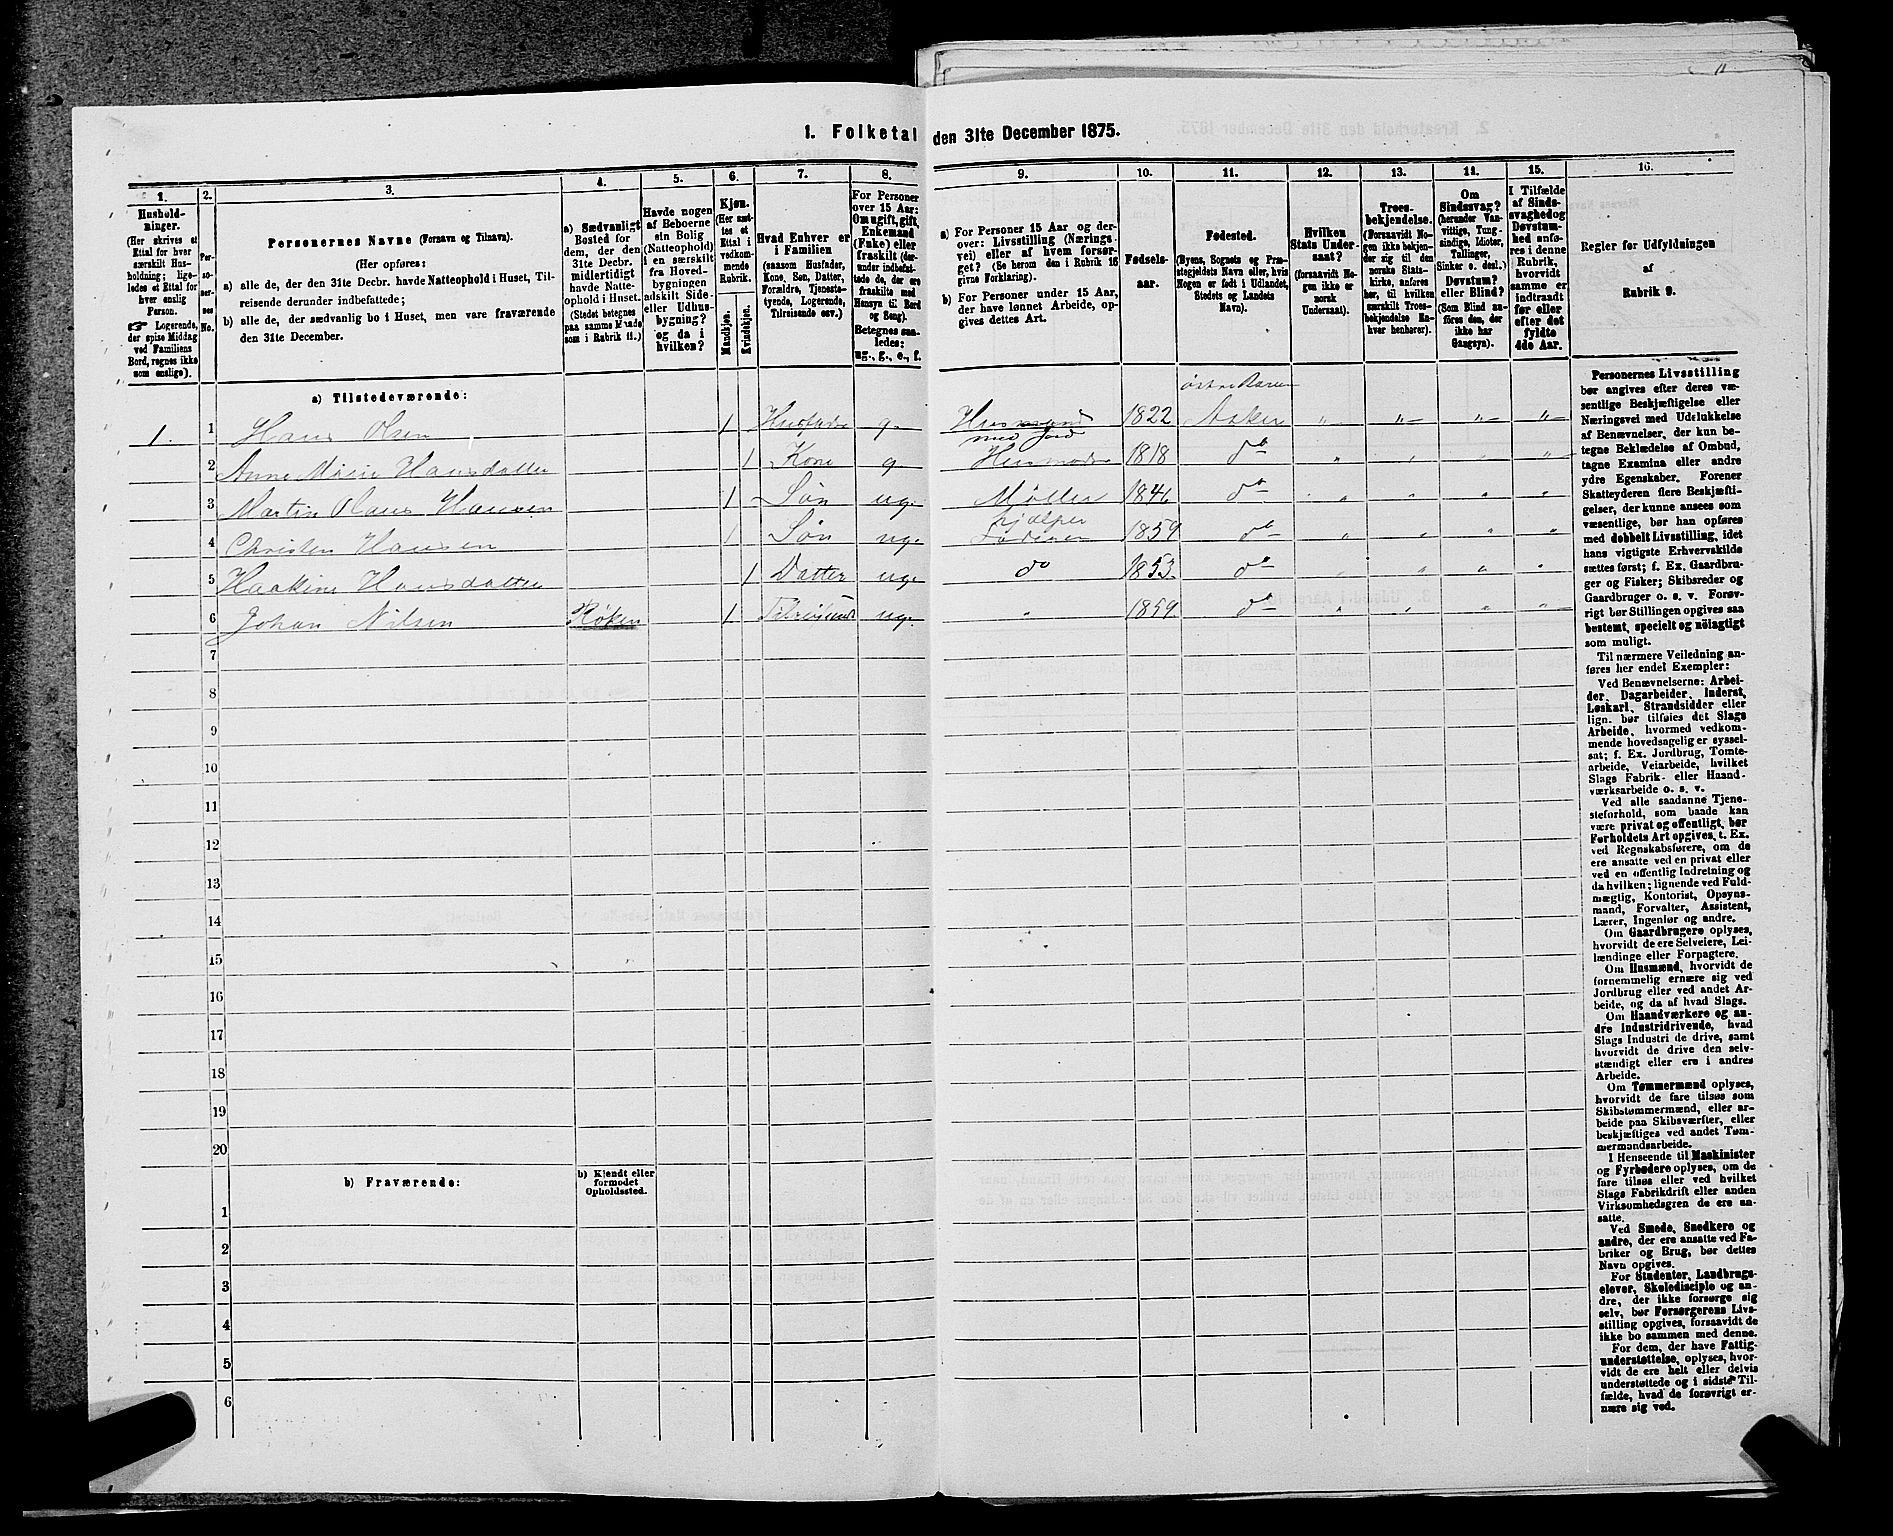 1. Folketal den 31te December 1875.
1.
Hushold-
ninger.
(Her skrives et
Ettal for hver
særskilt Hus-
holdning; lige-
ledes et Ettal for
hver enslig
Person.
☞ Logerende,
der spise Middag
ved Familiens
Bord, regnes ikke
som enslige).
2.
Per-
so-
ner-
nes
No.
3.
Personernes Navne (Fornavn og Tilnavn).
(Her opføres:
a) alle de, der den 31te Decbr. havde Natteophold i Huset, Til-
reisende derunder indbefattede;
b) alle de, der sædvanlig bo i Huset, men vare fraværende
den 31te December.
4.
a) Sædvanligt
Bosted for
dem, der den
31te Decbr.
midlertidigt
havde Natte-
ophold i Huset.
(Stedet betegnes
paa samme Maade
som i Rubrik 11.)
5.
Havde nogen
af Beboerne
sin Bolig
(Natteophold)
i en særskilt
fra Hoved-
bygningen
adskilt Side-
eller Udhus-
bygning?
og da i
hvilken?
6.
Kjøn.
(Her sæt-
tes et
Ettal i
vedkom-
mende
Rubrik.
Mandkjøn.
Kvindekjøn.
7.
Hvad Enhver er
i Familien
(saasom Husfader,
Kone, Søn, Datter,
Forældre, Tjeneste-
tyende, Logerende,
Tilreisende osv.)
8.
For Personer
over 15 Aar:
Om ugift, gift,
Enkemand
(Enke) eller
fraskilt (der-
under indbefat-
tede de, der ere
fraskilte med
Hensyn til Bord
og Seng).
Betegnes saa-
ledes:
ug., g., e., f.
9.
a) For Personer 15 Aar og der-
over: Livsstilling (Nærings-
vei) eller af hvem forsør-
get? (Se herom den i Rubrik 16
givne Forklaring).
b) For Personer under 15 Aar,
der have lønnet Arbeide, op-
gives dettes Art.
10.
Fødsels-
aar.
11.
Fødested.
(Byens, Sognets og Præ-
stegjeldets Navn eller, hvis
Nogen er født i Udlandet,
Stedets og Landets
Navn).
12.
Hvilken
Stats Under-
saat?
(forsaavidt No-
gen ikke er
norsk
Undersaat).
13.
Troes-
bekjendelse.
(Forsaavidt No-
gen ikke bekjen-
der sig til den
norske Stats-
kirke, anføres
her, til hvilken
særskilt Troes-
bekjendelse En-
hver henhører).
14.
Om
Sindssvag?
(herunder Van-
vittige, Tung-
sindige, Idioter,
Tullinger,
Sinker o. desl.)
Døvstum?
eller Blind?
(Som Blind an-
føres den, der
ikke har
Gangsyn).
15.
I Tilfælde
af Sinds-
svaghed og
Døvstum-
hed anfø-
res i denne
Rubrik,
hvorvidt
samme er
indtraadt
før eller
efter det
fyldte
4de Aar.
16.
Regler for Udfyldningen
af
Rubrik 9.
a) Tilstedeværende:
østre Barum
1. 1 Hans Olsen 1 Husfader g. Husmand med Jord 1822 Asker " " " "
2 Anne Marie Hansdatter 1 Kone g Husmoder 1818 do " " " "
3 Martin Olaus Hansen 1 Søn ug. Møller 1846 do " " " "
4 Christen Hansen 1 Søn ug. Hjælper Faderen 1859 do " " " "
5 Haakine Hansdatter 1 Datter ug. do 1853. do " " " "
6 Johan Nilsen Røken 1 Tilreisende ug. " 1859. do " " " "
7
8
9
10
11
12
13
14
15
16
17
18
19
20
b) Fraværende:
b) Kjendt eller
formodet
Opholdssted.
1
2
3
4
5
6
Personernes Livsstilling
bør angives efter deres væ-
sentlige Beskjæftigelse eller
Næringsvei med Udelukkelse
af Benævnelser, der kun be-
tegne Beklædelse af Ombud,
tagne Examina eller andre
ydre Egenskaber. Forener
Skatteyderen flere Beskjæfti-
gelser, der kunne ansees som
væsentlige, bør han opføres
med dobbelt Livsstilling, idet
hans vigtigste Erhvervskilde
sættes først; f. Ex. Gaardbru-
ger og Fisker; Skibsreder og
Gaardbruger o. s. v. Forøv-
rigt bør Stillingen opgives saa
bestemt, specielt og nøiagtigt
som muligt.
Til nærmere Veiledning an-
føres her endel Exempler:
Ved Benævnelserne: Arbei-
der, Dagarbeider, Inderst,
Løskarl, Strandsidder eller
lign. bør tilføies det Slags
Arbeide, hvormed vedkom-
mende hovedsagelig er syssel-
sat; f. Ex. Jordbrug, Tomte-
arbeide, Veiarbeide, hvilket
Slags Fabrik- eller Haand-
værksarbeide o. s. v.
Ved alle saadanne Tjene-
steforhold, som baade kan
være privat og offentligt, bør
Forholdets Art opgives, t. Ex.
ved Regnskabsførere, om de
ere ansatte ved en privat eller
ved en offentlig Indretning og
da hvilken; lignende ved Fuld-
mægtig, Kontorist, Opsyns-
mand, Forvalter, Assistent,
Lærer, Ingeniør og andre.
Om Gaardbrugere oplyses,
hvorvidt de ere Selveiere, Lei-
lændinge eller Forpagtere.
Om Husmænd, hvorvidt de
fornemmelig ernære sig ved
Jordbrug eller ved andet Ar-
beide, og da af hvad Slags.
Om Haandværkere og an-
dre Industridrivende, hvad
Slags Industri de drive, samt
hvorvidt de drive den selv-
stændigt eller ere i andres
Arbeide.
Om Tømmermænd oplyses,
hvorvidt de fare tilsøs som
Skibstømmermænd, eller ar-
beide paa Skibsværfter, eller
beskjæftiges ved andet Tøm-
mermandsarbeide.
I Henseende til Maskinister
og Fyrbødere oplyses, om de
fare tilsøs eller ved hvilket
Slags Fabrikdrift eller anden
Virksomhedsgren de ere an-
satte.
Ved Smede, Snedkere og
andre, der ere ansatte ved Fa-
briker og Brug, bør dettes
Navn opgives.
For Studenter, Landbrugs-
elever, Skoledisciple og an-
dre, der ikke forsørge sig
selv, bør Forsørgerens Livs-
stilling opgives, forsaavidt de
ikke bo sammen med denne.
For dem, der have Fattig-
understøttelse, oplyses, hvor-
vidt de ere helt eller delvis
understøttede og i sidste Til-
fælde, hvad de forøvrigt er-
nære sig ved.